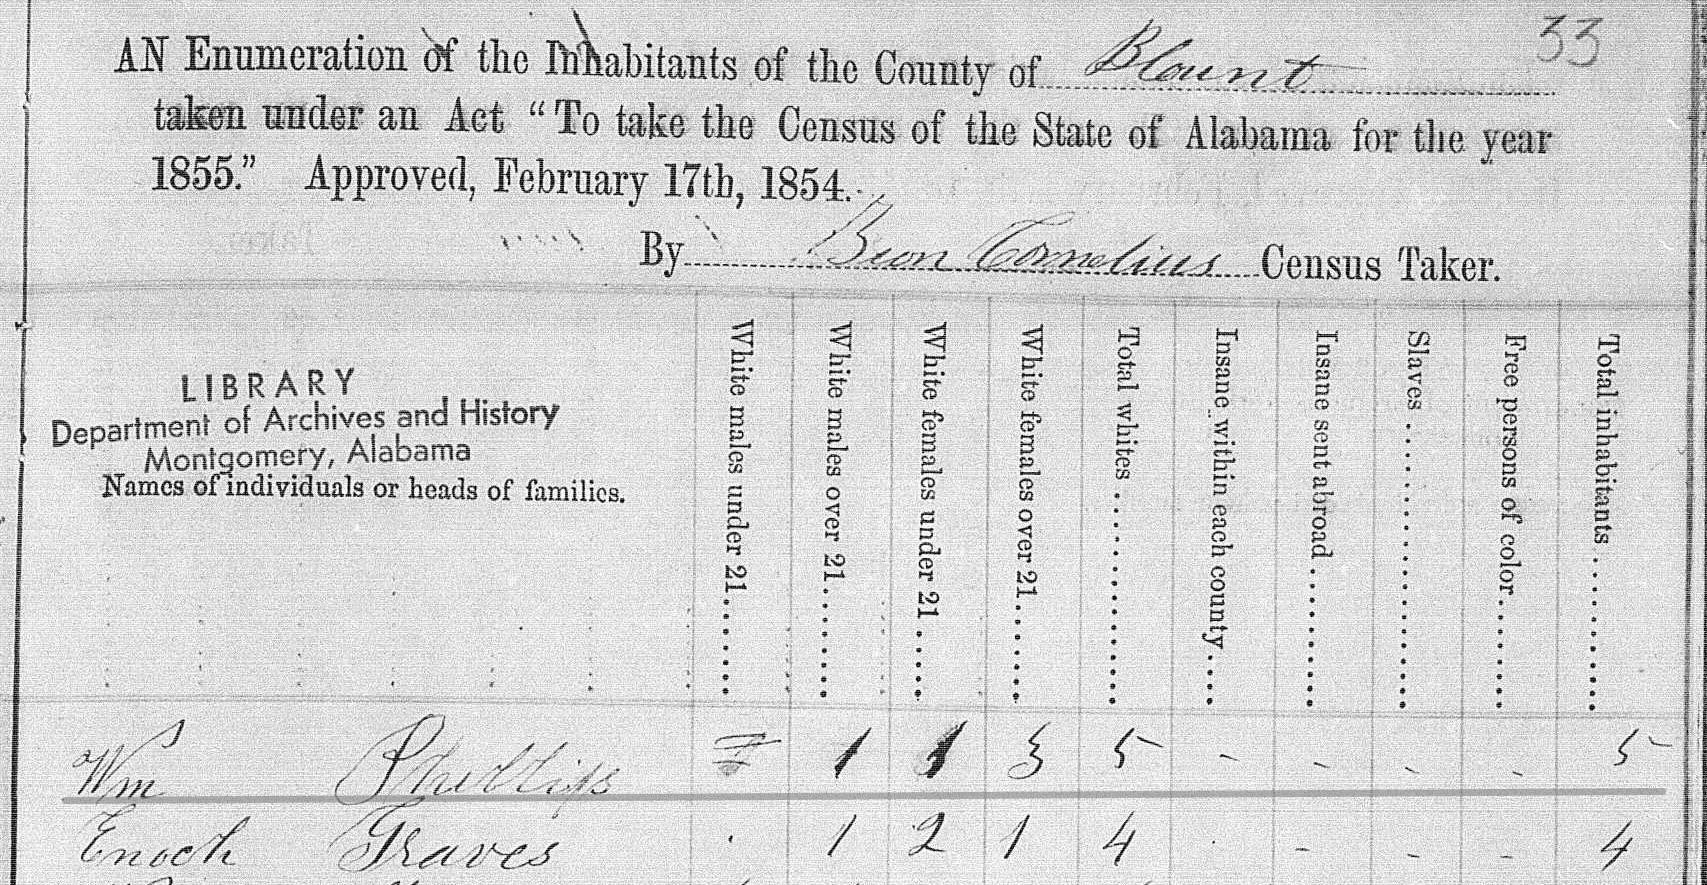 33
AN Enumeration of the Inhabitants of the County of Blount
taken under an Act "To take the Census of the State of Alabama for the year
1855." Approved, February 17th, 1854.
By Beon Cornelius Census Taker.
LIBRARY
Department of Archives and History
Montgomery, Alabama
Names of individuals or heads of families.
White males under 21
White males over 21
White females under 21
White females over 21
Total whites
Insane within each county
Insane sent abroad
Slaves
Free persons of color
Total inhabitants
Wm Phillips 1 1 3 5 - - - - 5
Enoch Graves . 1 2 1 4 . - - - 4